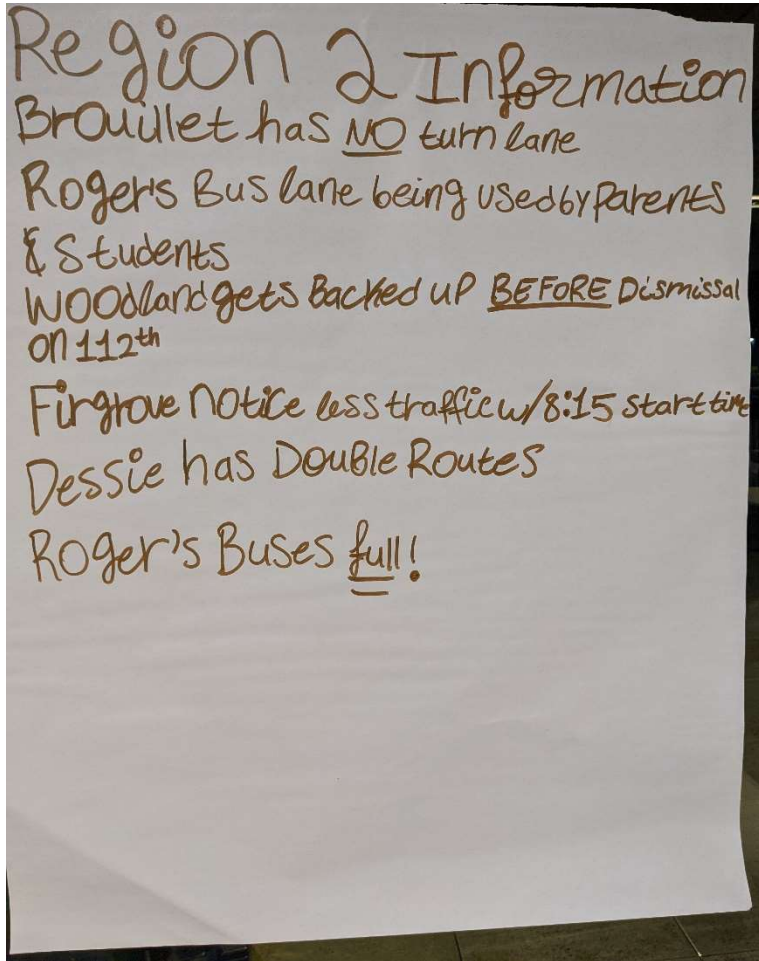 Region 2 Information
Brouillet has NO turn lane
Roger's Bus lane being used by parents
& Students
Woodland gets Backed up BEFORE Dismissal
on 112th
Firgrove notice less traffic w/8:15 start time
Dessie has Double Routes
Roger's Buses full!